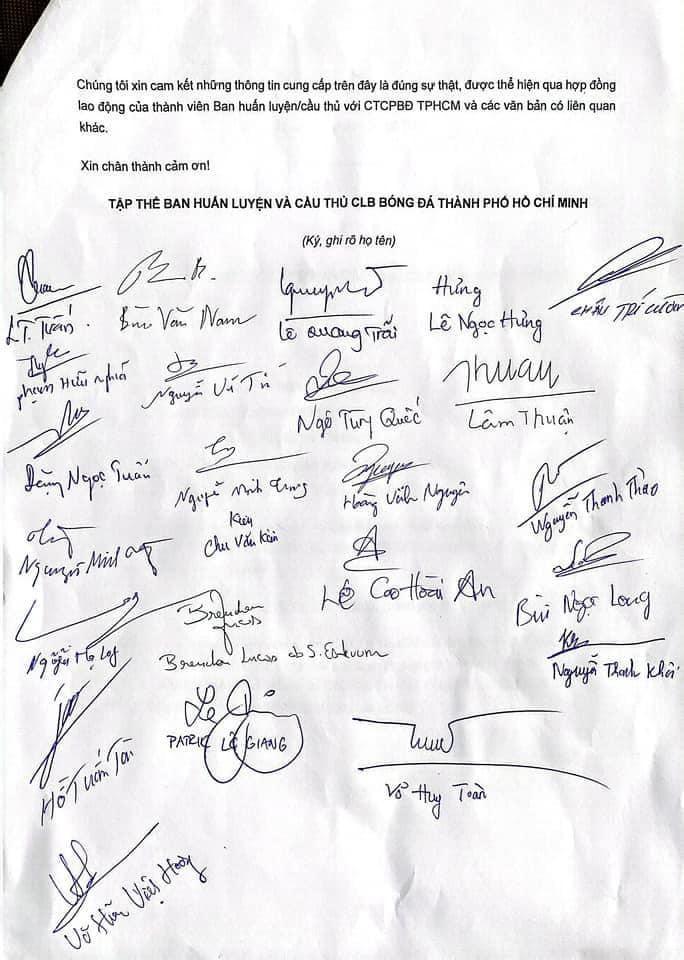 Chúng tôi xin cam kết những thông tin cung cấp trên đây là đúng sự thật, được thể hiện qua hợp đồng
lao động của thành viên Ban huấn luyện/cầu thủ với CTCPBĐ TPHCM và các văn bản có liên quan
khác.
Xin chân thành cảm ơn!
TẬP THỂ BAN HUẤN LUYỆN VÀ CẦU THỦ CLB BÓNG ĐÁ THÀNH PHỐ HỒ CHÍ MINH
(Ký, ghi rõ họ tên)
L.T. Tuấn.
Bùi Văn Nam
Lê Quang Trãi
Hưng
Lê Ngọc Hưng
CHÂU TRÍ CƯỜNG
Phạm Hữu Nghĩa
Nguyễn
Ngô Tùng Quốc
Thuan
Lâm Thuận
Ngọc Tuấn
Nguyễn Minh Trung
Hoàng Vĩnh Nguyên
Nguyễn Thanh Thảo
Nguyễn Minh
Kiên
Chu Văn Kiên
Lê Cao Hoài An
Bùi Ngọc Long
Nguyễn
Brendan
Lucas
Brendan Lucas
Nguyễn Thanh Khôi
Hồ Tuấn Tài
PATRIK LÊ GIANG
Võ Huy Toàn
Võ Hữu Việt Hoàng